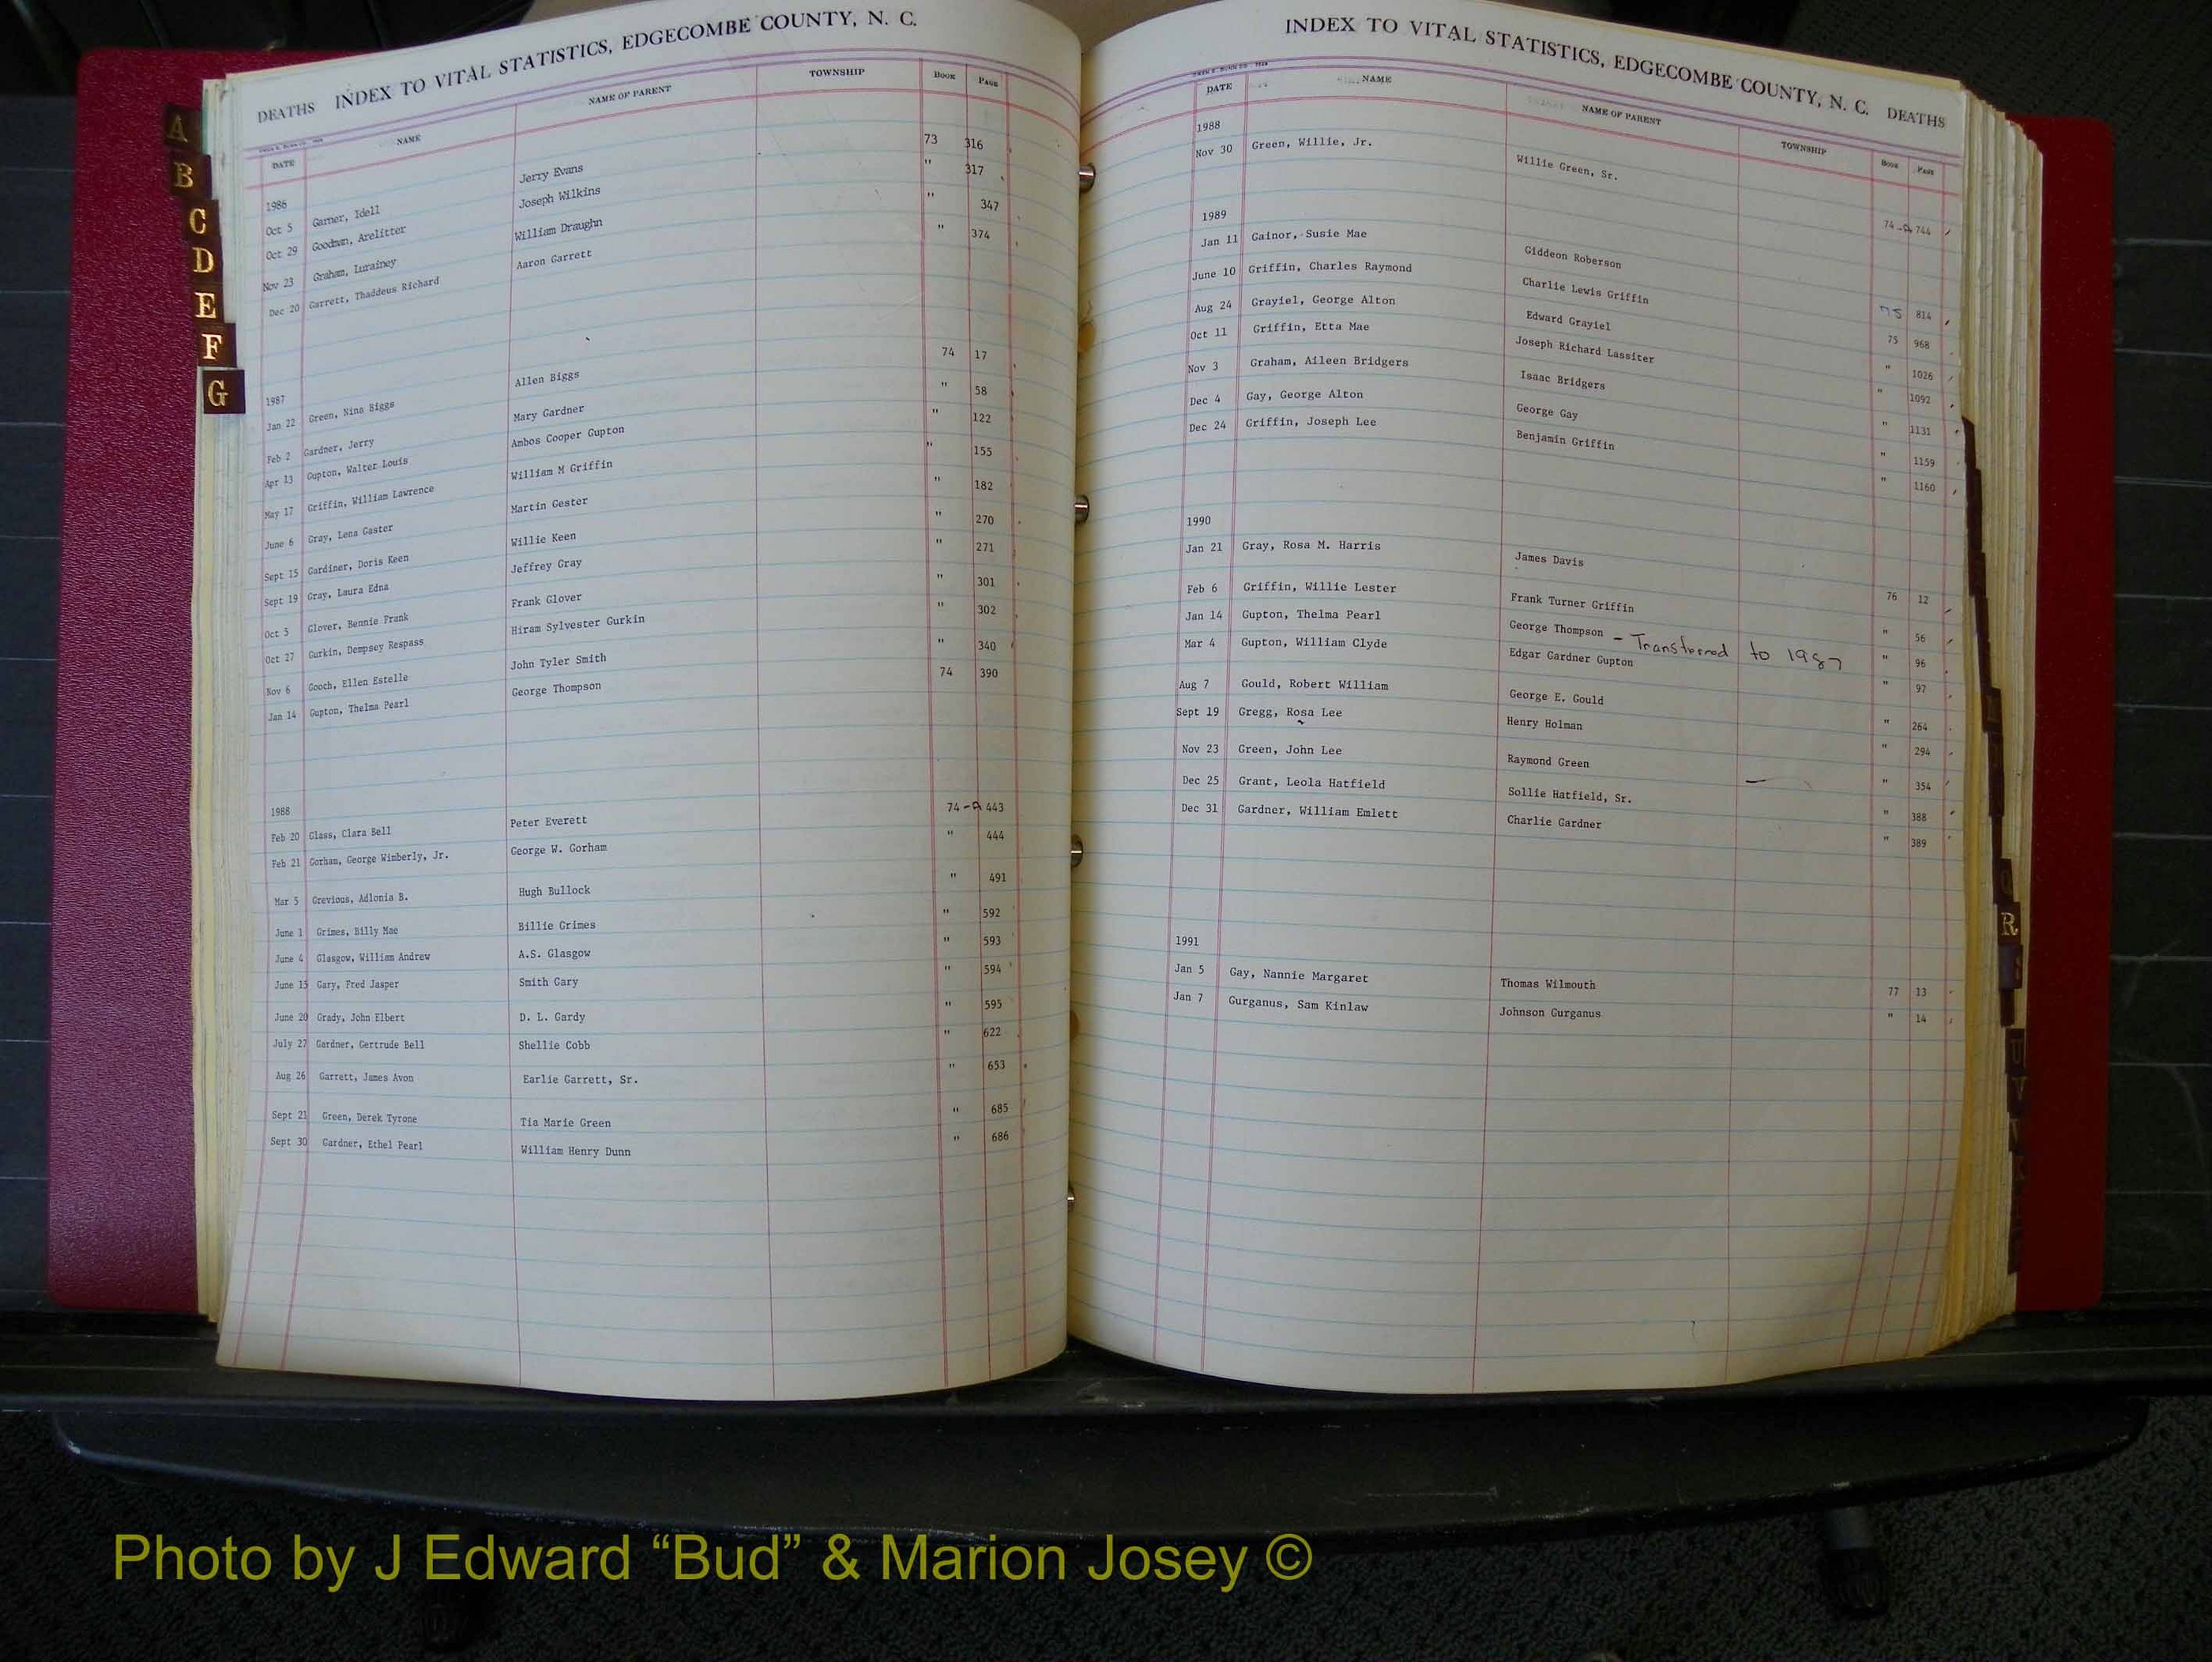 A
B
C
D
E
F
G
DEATHS INDEX TO VITAL STATISTICS, EDGECOMBE COUNTY, N. C.
DATE NAME NAME OF PARENT TOWNSHIP BOOK PAGE
1986
Oct 5 Garner, Idell Jerry Evans 73 316
Oct 29 Goodman, Arelitter Joseph Wilkins " 317
Nov 23 Graham, Lurainey William Draughn " 347
Dec 20 Garrett, Thaddeus Richard Aaron Garrett " 374
1987
Jan 22 Green, Nina Biggs Allen Biggs 74 17
Feb 2 Gardner, Jerry Mary Gardner " 58
Apr 13 Gupton, Walter Louis Ambos Cooper Gupton " 122
May 17 Griffin, William Lawrence William M Griffin " 155
June 6 Gray, Lena Gaster Martin Gester " 182
Sept 15 Gardiner, Doris Keen Willie Keen " 270
Sept 19 Gray, Laura Edna Jeffrey Gray " 271
Oct 5 Glover, Bennie Frank Frank Glover " 301
Oct 27 Gurkin, Dempsey Respass Hiram Sylvester Gurkin " 302
Nov 6 Gooch, Ellen Estelle John Tyler Smith " 340
Jan 14 Gupton, Thelma Pearl George Thompson 74 390
1988
Feb 20 Glass, Clara Bell Peter Everett 74-a 443
Feb 21 Gorham, George Wimberly, Jr. George W. Gorham " 444
Mar 5 Grevious, Adlonia B. Hugh Bullock " 491
June 1 Grimes, Billy Mae Billie Grimes " 592
June 4 Glasgow, William Andrew A.S. Glasgow " 593
June 15 Gary, Fred Jasper Smith Gary " 594
June 20 Grady, John Elbert D. L. Gardy " 595
July 27 Gardner, Gertrude Bell Shellie Cobb " 622
Aug 26 Garrett, James Avon Earlie Garrett, Sr. " 653
Sept 21 Green, Derek Tyrone Tia Marie Green " 685
Sept 30 Gardner, Ethel Pearl William Henry Dunn " 686
INDEX TO VITAL STATISTICS, EDGECOMBE COUNTY, N. C. DEATHS
DATE NAME NAME OF PARENT TOWNSHIP BOOK PAGE
1988
Nov 30 Green, Willie, Jr. Willie Green, Sr. 74-a 744
1989
Jan 11 Gainor, Susie Mae Giddeon Roberson 75 814
June 10 Griffin, Charles Raymond Charlie Lewis Griffin 75 968
Aug 24 Grayiel, George Alton Edward Grayiel " 1026
Oct 11 Griffin, Etta Mae Joseph Richard Lassiter " 1092
Nov 3 Graham, Aileen Bridgers Isaac Bridgers " 1131
Dec 4 Gay, George Alton George Gay " 1159
Dec 24 Griffin, Joseph Lee Benjamin Griffin " 1160
1990
Jan 21 Gray, Rosa M. Harris James Davis 76 12
Feb 6 Griffin, Willie Lester Frank Turner Griffin " 56
Jan 14 Gupton, Thelma Pearl George Thompson - Transferred to 1987 " 96
Mar 4 Gupton, William Clyde Edgar Gardner Gupton " 97
Aug 7 Gould, Robert William George E. Gould " 264
Sept 19 Gregg, Rosa Lee Henry Holman " 294
Nov 23 Green, John Lee Raymond Green " 354
Dec 25 Grant, Leola Hatfield Sollie Hatfield, Sr. " 388
Dec 31 Gardner, William Emlett Charlie Gardner " 389
1991
Jan 5 Gay, Nannie Margaret Thomas Wilmouth 77 13
Jan 7 Gurganus, Sam Kinlaw Johnson Gurganus " 14
R
Photo by J Edward “Bud” & Marion Josey ©